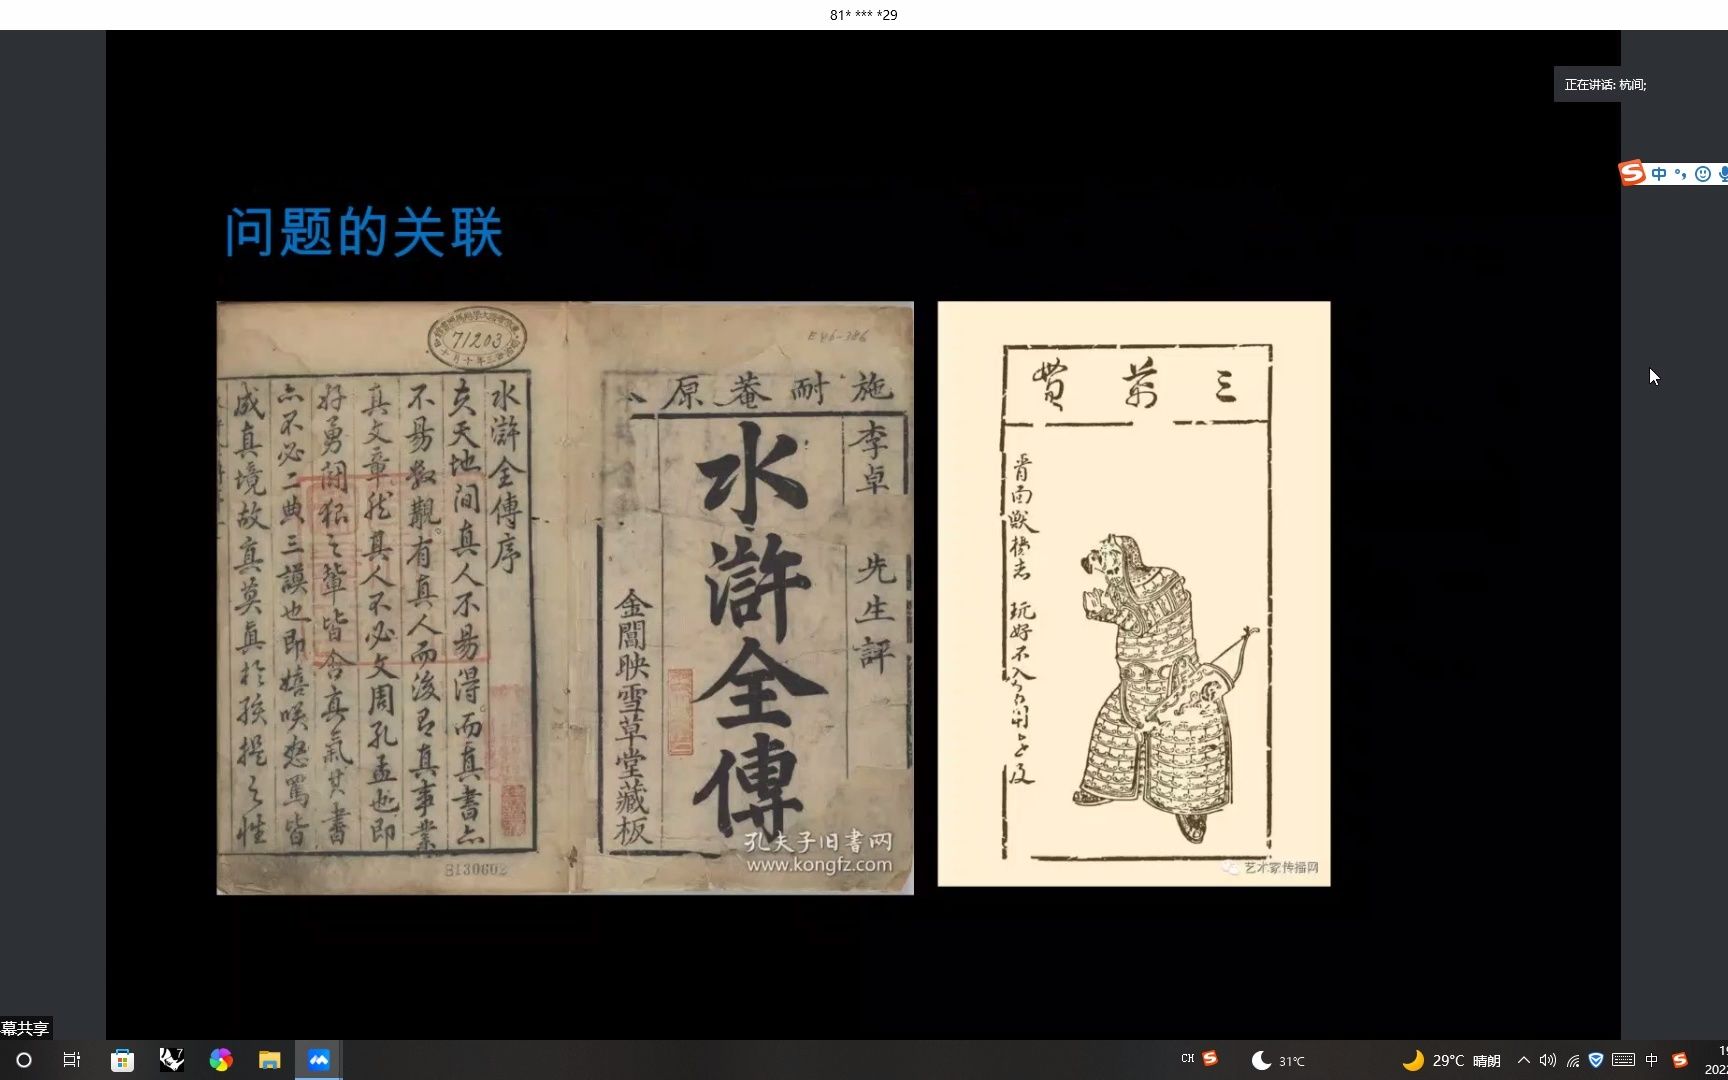 81* *** *29
正在讲话: 杭间;
中
问题的关联
71203
施耐菴原
李卓 先生評
水滸全傳
金閶映雪草堂藏板
水滸全傳序
亥天地間真人不易得而真書亦
不易數觀有真人而後有真事業
真文章然真人不必文周孔孟也即
好勇鬪狠之輩皆含真氣其書
亦不必二典三謨也即嬉咲怒罵皆
成真境故真莫真於孩提之性
B130602
孔夫子旧書网
www.kongfz.com
三萬貫
青面獸楊志
玩好不入
艺术家传播网
幕共享
CH
31℃
29°C 晴朗
中